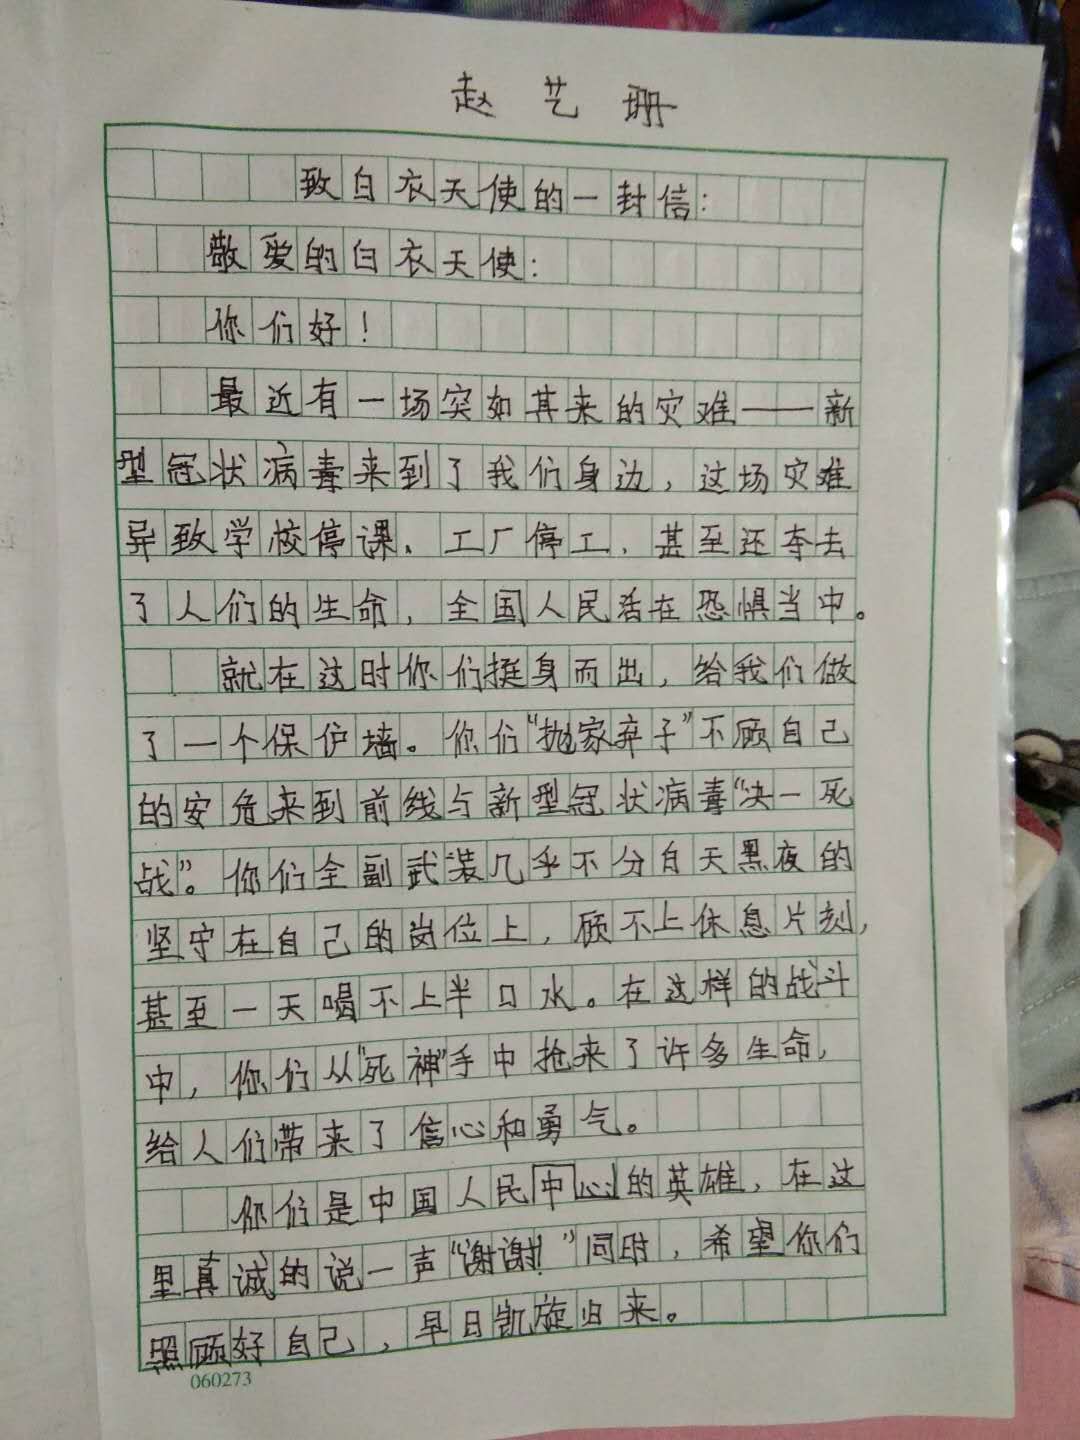 赵艺珊
致白衣天使的一封信:
敬爱的白衣天使:
你们好!
最近有一场突如其来的灾难——新
型冠状病毒来到了我们身边,这场灾难
导致学校停课、工厂停工、甚至还夺去
了人们的生命,全国人民活在恐惧当中。
就在这时你们挺身而出,给我们做
了一个保护墙。你们“抛家弃子”不顾自己
的安危来到前线与新型冠状病毒“决一死
战”。你们全副武装几乎不分白天黑夜的
坚守在自己的岗位上,顾不上休息片刻,
甚至一天喝不上半口水。在这样的战斗
中,你们从“死神”手中抢来了许多生命,
给人们带来了信心和勇气。
你们是中国人民中心的英雄,在这
里真诚的说一声“谢谢!”同时,希望你们
照顾好自己,早日凯旋归来。
060273